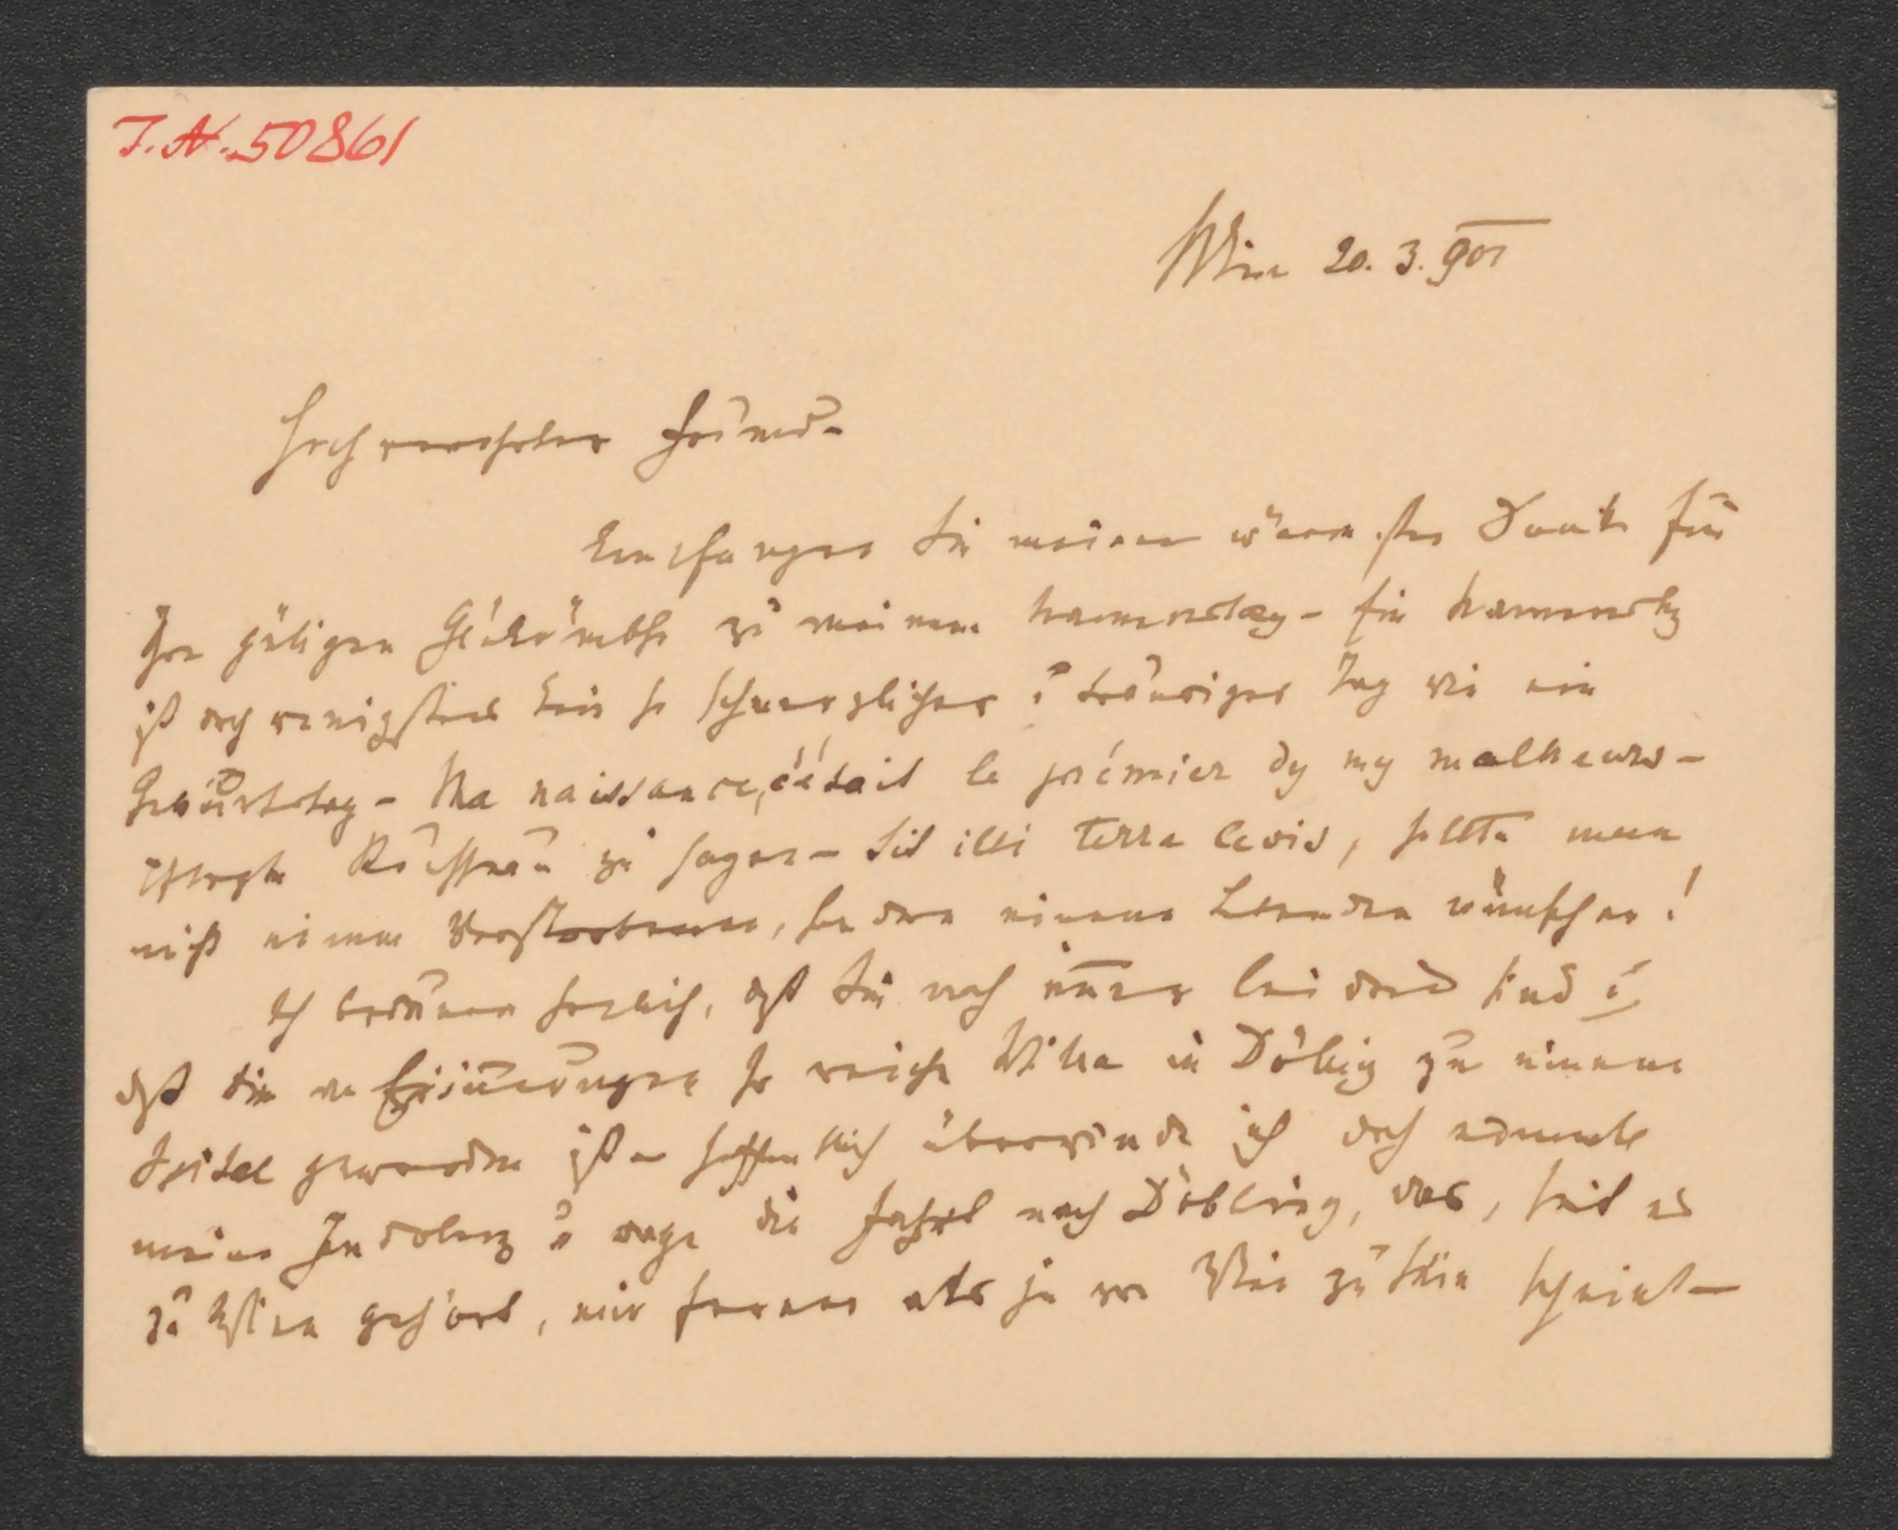 I.N. 50861
Wien 20. 3. 901
Hochverehrter Freund –
Empfangen Sie meinen wärmsten Dank für
Ihre gütigen Glückwünsche zu meinem Namenstag – Ein Namenstag
ist doch wenigstens kein so schmerzlicher u trauriger Tag wie ein
Geburtstag – Ma naissance, c'était le prémier dy my malheurs –
pflegte Rousseau zu sagen – Sit illi terra levis, sollte man
nicht einem Verstorbenen, sondern einem Lebenden wünschen!
Ich bedauere herzlich, daß Sie noch immer leidend sind u
daß die an Erinnerungen so reiche Villa in Döbling zu einem
Spital geworden ist – hoffentlich überwinde ich doch einmal
meine Indolenz u wage die Fahrt nach Döbling, das, seit es
zu Wien gehört, mir ferner als je von Wien zu sein scheint –